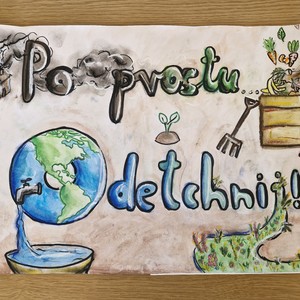 Po prostu...
Odetchnij!